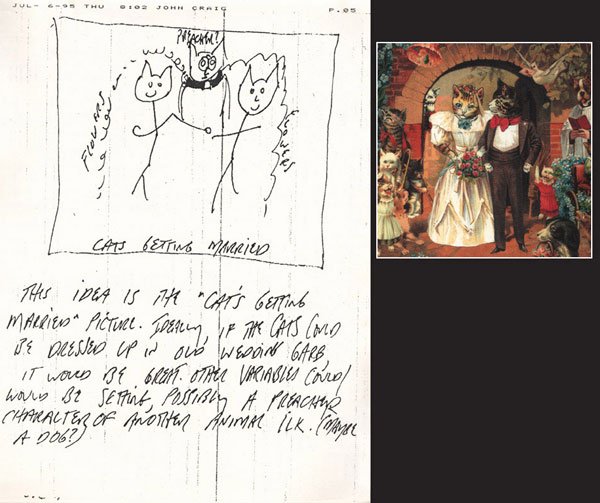 JUL- 6-95 THU 8:02 JOHN CRAIG P.05
PREACHER?
FLOWERS
FLOWERS
CATS GETTING MARRIED
THIS IDEA IS THE "CAT'S GETTING
MARRIED" PICTURE. IDEALLY, IF THE CATS COULD
BE DRESSED UP IN OLD WEDDING GARB,
IT WOULD BE GREAT. OTHER VARIABLES COULD/
WOULD BE SETTING, POSSIBLY A PREACHER
CHARACTER OF ANOTHER ANIMAL ILK. (MAYBE
A DOG?)